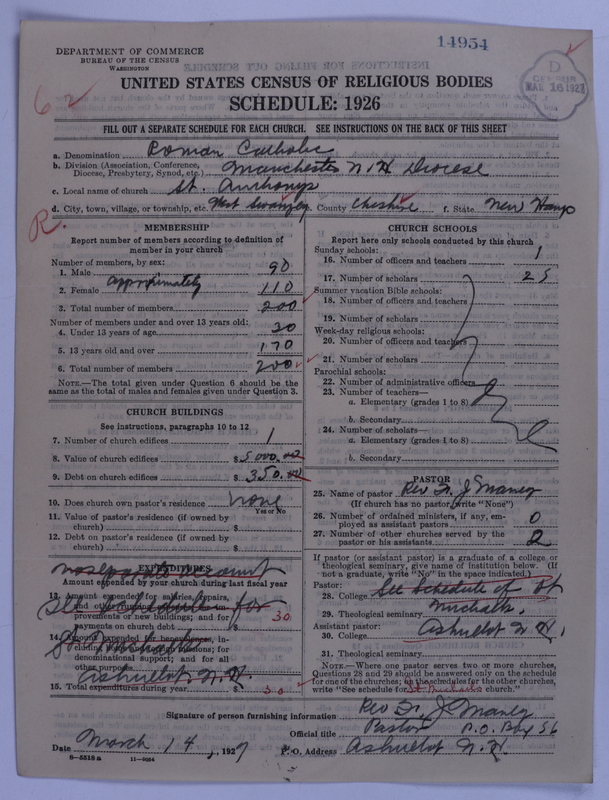 14954
DEPARTMENT OF COMMERCE
BUREAU OF THE CENSUS
WASHINGTON
D
CENSUS
MAR 16 1927
UNITED STATES CENSUS OF RELIGIOUS BODIES
SCHEDULE: 1926
6
FILL OUT A SEPARATE SCHEDULE FOR EACH CHURCH. SEE INSTRUCTIONS ON THE BACK OF THIS SHEET
a. Denomination Roman Catholic
b. Division (Association, Conference, Diocese, Presbytery, Synod, etc.) Manchester N.H Diocese
c. Local name of church St. Anthonys
d. City, town, village, or township, etc. West Swanzey e. County Cheshire f. State New Hamp
R.
MEMBERSHIP
Report number of members according to definition of
member in your church
Number of members, by sex:
1. Male 90
approximately
2. Female 110
3. Total number of members 200
Number of members under and over 13 years old:
4. Under 13 years of age 30
5. 13 years old and over 170
6. Total number of members 200
NOTE.—The total given under Question 6 should be the
same as the total of males and females given under Question 3.
CHURCH BUILDINGS
See instructions, paragraphs 10 to 12
7. Number of church edifices 1
8. Value of church edifices $ 5000.
9. Debt on church edifices $ 350.
10. Does church own pastor's residence none
Yes or No
11. Value of pastor's residence (if owned by
church) $
12. Debt on pastor's residence (if owned by
church) $
EXPENDITURES
no separate account
Amount expended by your church during last fiscal year
13. Amount expended for salaries, repairs,
and other running expenses; for im-
provements or new buildings; and for
payments on church debt $ 30
See Schedule for
14. Amount expended for benevolences, in-
cluding home and foreign missions; for
denominational support; and for all
other purposes
St Michaels
Ashuelot N.H.
15. Total expenditures during year $ 30
CHURCH SCHOOLS
Report here only schools conducted by this church
Sunday schools:
16. Number of officers and teachers 1
17. Number of scholars 25
Summer vacation Bible schools:
18. Number of officers and teachers
19. Number of scholars
Week-day religious schools:
20. Number of officers and teachers
21. Number of scholars
Parochial schools:
22. Number of administrative officers
23. Number of teachers—
a. Elementary (grades 1 to 8)
b. Secondary
24. Number of scholars—
a. Elementary (grades 1 to 8)
b. Secondary
PASTOR
25. Name of pastor Rev. J Maney
(If church has no pastor, write "None")
26. Number of ordained ministers, if any, em-
ployed as assistant pastors 0
27. Number of other churches served by the
pastor or his assistants 2
If pastor (or assistant pastor) is a graduate of a college or
theological seminary, give name of institution below. (If
not a graduate, write "No" in the space indicated.)
Pastor:
28. College See Schedule of St
29. Theological seminary Michaels,
Assistant pastor:
30. College Ashuelot N.H.
31. Theological seminary
NOTE.—Where one pastor serves two or more churches,
Questions 28 and 29 should be answered only on the schedule
for one of the churches; on the schedules for the other churches,
write "See schedule for St Michaels church."
Signature of person furnishing information Rev. J Maney
Official title Pastor P.O. Box 56
Date March 14, 1927 P. O. Address Ashuelot N.H.
8—5518 a 11—9054